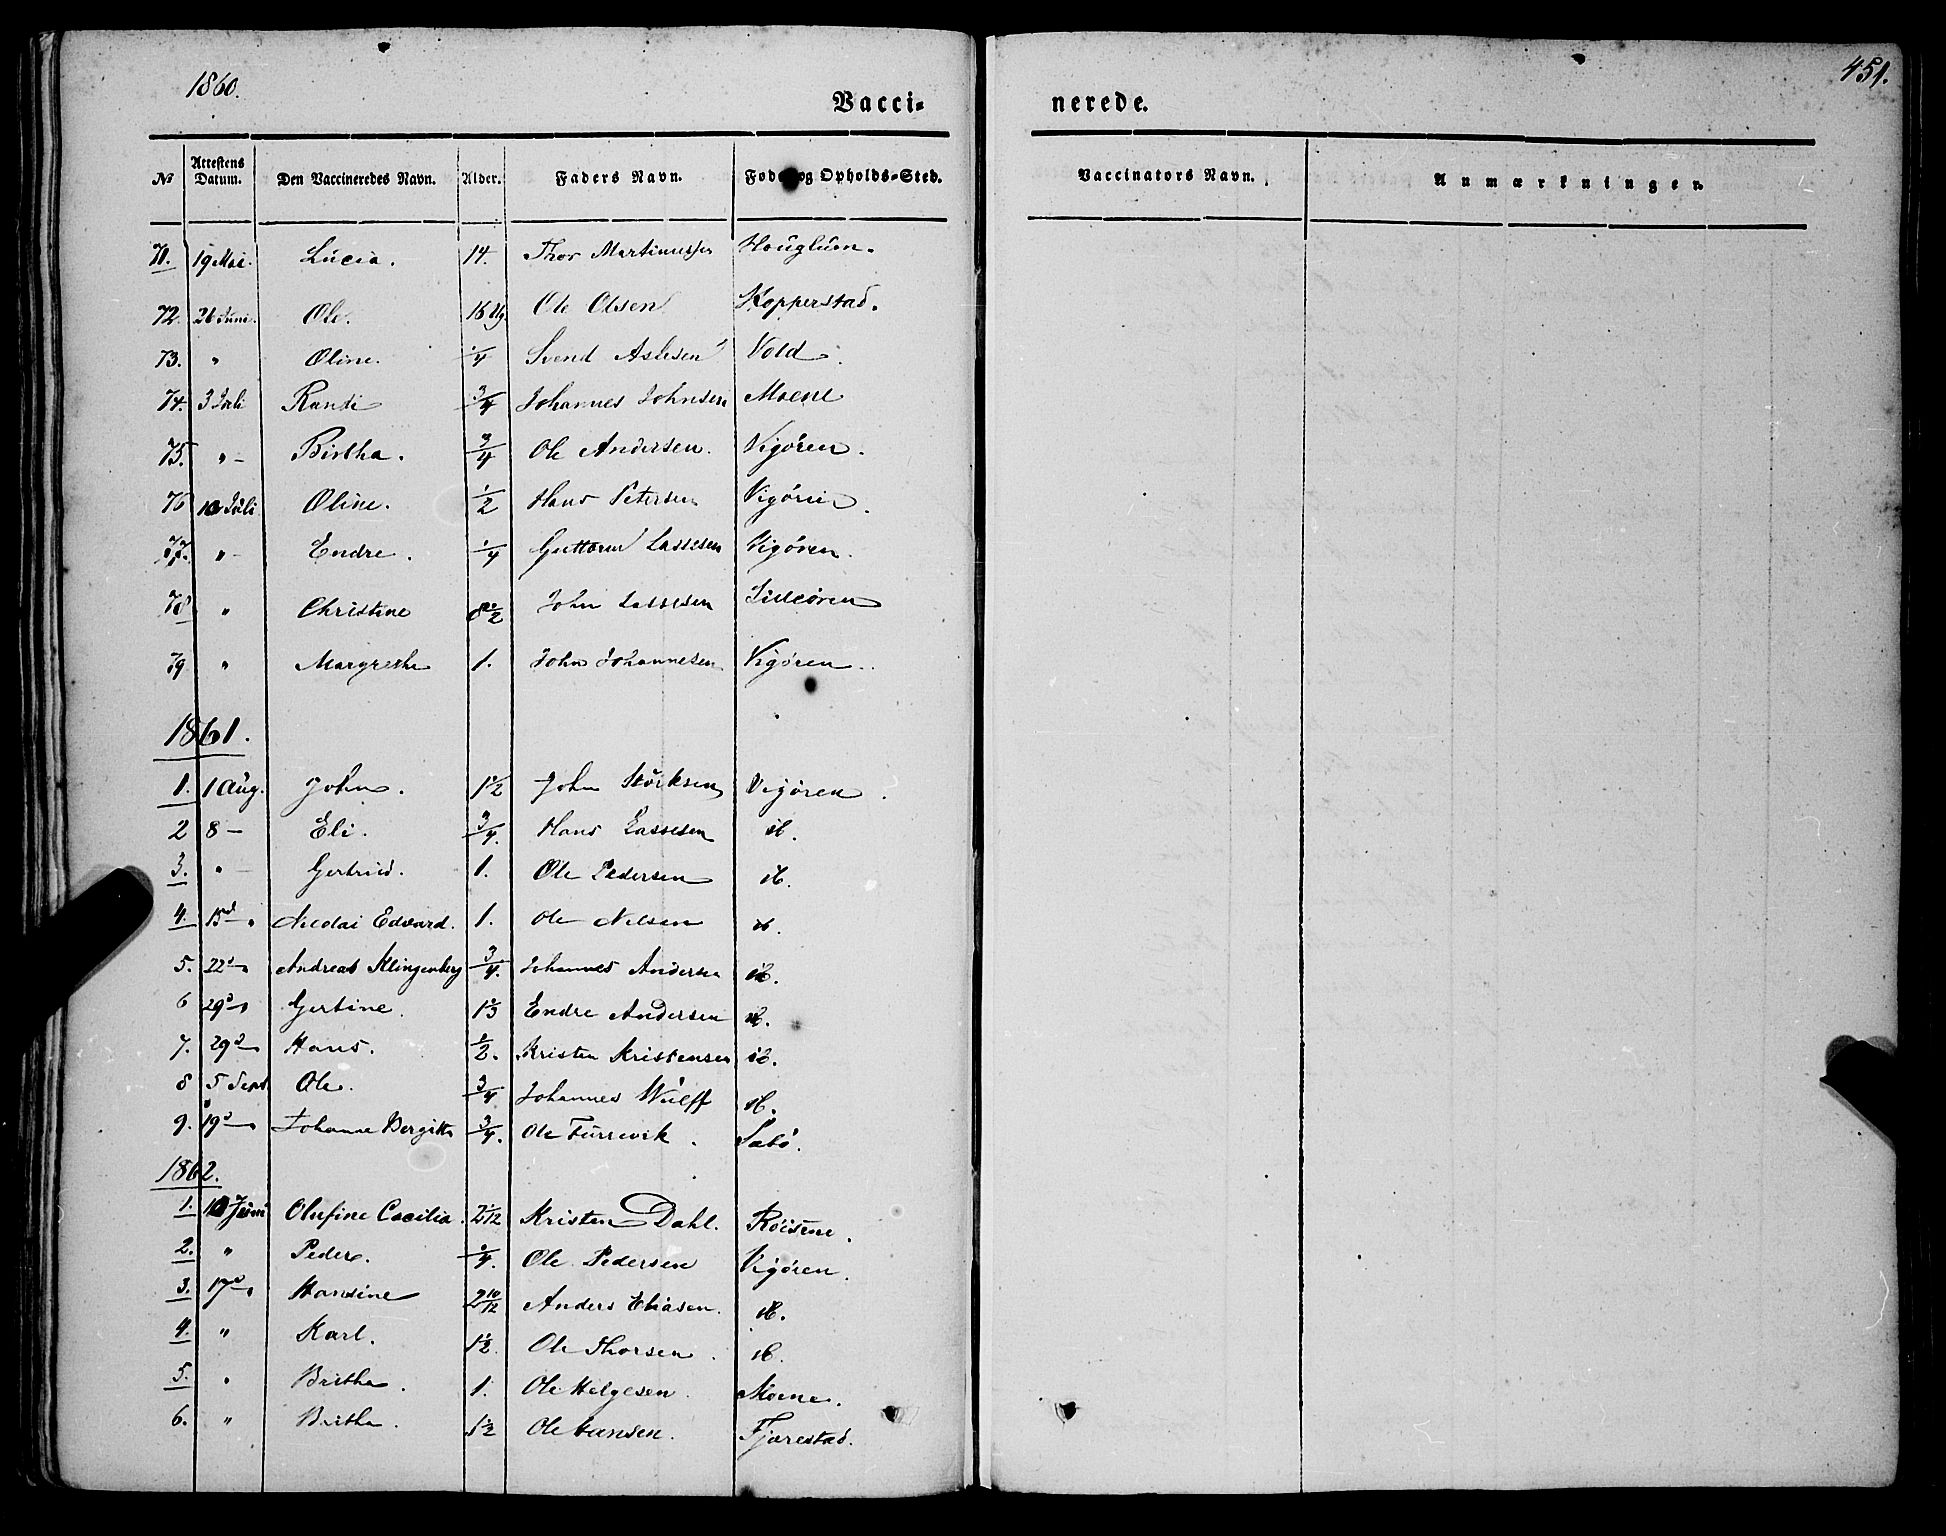 1860.
451.
Vacci- nerede.
№ Attestens Datum. Den Vaccineredes Navn. Alder. Faders Navn. Føde- og Opholds-Sted. Vaccinators Navn. Anmærkninger.
71. 19 Mai. Lucia. 14. Thor Houglum.
72. 26 Juni. Ole. 16 Ole Olsen Kopperstad.
73. " Oline. 1/4 Svend Aslesen Vold.
74. 3 Juli Randi 3/4 Johannes Johnsen Moene
75. " - Birtha. 3/4 Ole Andersen. Vigören.
76 10 Juli. Oline. 1/2 Hans Petersen Vigören.
77. " - Endre. 1/4 Guttorm Lassesen Vigören.
78 " Christine 8 1/2 John Lassesen
79 " Margrethe 1. John Johannesen Vigören.
1861.
1. 1 Aug. John. 1 1/2 John Störksen Vigören.
2 8 - Eli. 3/4. Hans Lassesen ib.
3. " - Gertrud. 1. Ole Pedersen ib.
4. 15d " Nicolai Edvard. 1. Ole Nilsen ib.
5. 22d Andreas Klingenberg 3/4. Johannes Andersen ib.
6 29d Gertine. 1 1/3 Endre Andersen ib.
7. 29d Hans. 1/2. Kristen Kristensen ib.
8 5 Sept Ole. 3/4 Johannes Wulff ib.
9. 19d Johanne Bergitte 3/4. Ole Furrevik. Sæbö.
1862.
1. 10 Juni Olufine Cacilia. 2 1/12 Kristen Dahl.
2. " Peder. 1/4. Ole Pedersen Vigören.
3. 17d Hansine 2 10/12 Anders Eliasen. ib.
4. " Karl. 1 1/2. Ole Thorsen. ib.
5. " Britha. 1. Ole Helgesen. Moene.
6. " Britha. 1 1/2 Ole Hansen. Fjærestad.